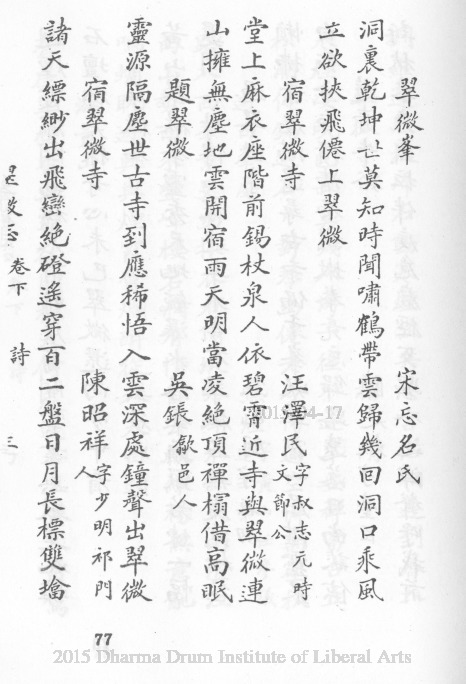 翠微峯 宋忘名氏
洞裏乾坤莫知時聞嘯鶴帶雲歸幾回洞口乘風
立欲挾飛僊上翠微
宿翠微寺 汪澤民字叔志元時文節公
堂上麻衣座階前錫杖泉人依碧霄近寺與翠微連
山擁無塵地雲開宿雨天明當凌絕頂禪榻借高眠
題翠微 吳鋹歙邑人
靈源隔塵世古寺到應稀悟入雲深處鐘聲出翠微
宿翠微寺 陳昭祥字少明祁門人
諸天縹緲出飛巒絕磴遙穿百二盤日月長標雙墖
卷下 詩 三
77
2015 Dharma Drum Institute of Liberal Arts